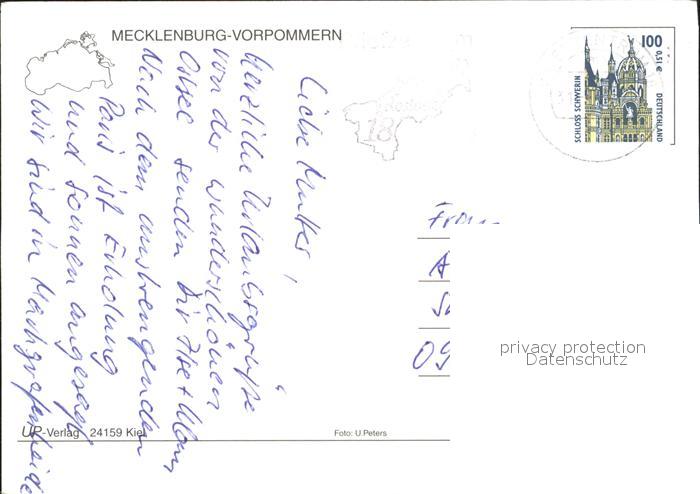 MECKLENBURG-VORPOMMERN
Liebe Mutter!
Herzliche Urlaubsgrüße
von der wunderschönen
Ostsee senden Dir
Nach dem anstrengenden
Paris ist Erholung
und Sonnen angesagt
Wir sind in
100 0,51 €
SCHLOSS SCHWERIN
DEUTSCHLAND
18
Frau
A
09
privacy protection
Datenschutz
UP-Verlag 24159 Kiel
Foto: U.Peters